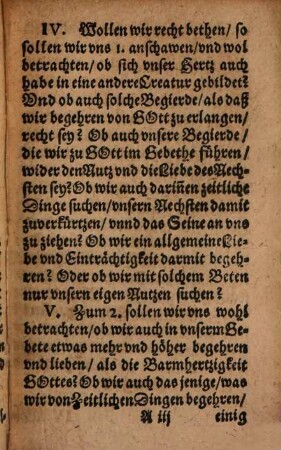 IV. Wollen wir recht bethen/ so
sollen wir vns 1. anschawen/ vnd wol
betrachten/ ob sich vnser Hertz auch
habe in eine andere Creatur gebildet?
Vnd ob auch solche Begierde/ als daß
wir begehren von GOtt zu erlangen/
recht sey? Ob auch vnsere Begierde/
die wir zu GOtt im Gebethe führen/
wider den Nutz vnd die Liebe des Nech-
sten sey? Ob wir auch dariñen zeitliche
Dinge suchen/ vnsern Nechsten damit
zuverkürtzen/ vnnd das Seine an vns
zu ziehen? Ob wir ein allgemeine Lie-
be vnd Einträchtigkeit darmit begeh-
ren? Oder ob wir mit solchem Beten
nur vnsern eigen Nutzen suchen?
V. Zum 2. sollen wir vns wohl
betrachten/ ob wir auch in vnserm Ge-
bete etwas mehr vnd höher begehren
vnd lieben/ als die Barmhertzigkeit
GOttes? Ob wir auch das jenige/ was
wir von Zeitlichen Dingen begehren/
A iij einig